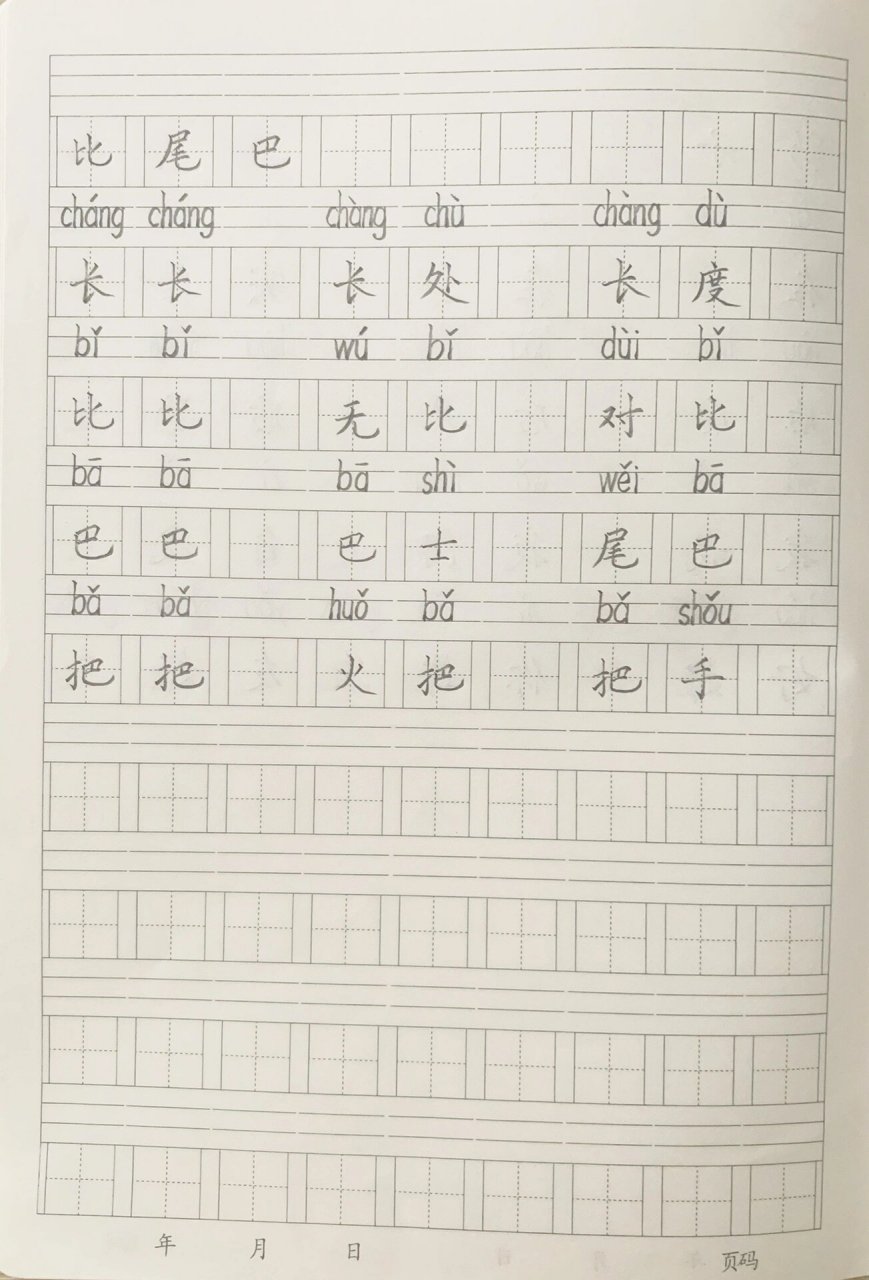 比尾巴
cháng cháng chàng chù chàng dù
长长 长处 长度
bǐ bǐ wú bǐ dùi bǐ
比比 无比 对比
bā bā bā shì wěi bā
巴巴 巴士 尾巴
bǎ bǎ huǒ bǎ bǎ shǒu
把把 火把 把手
年 月 日 页码